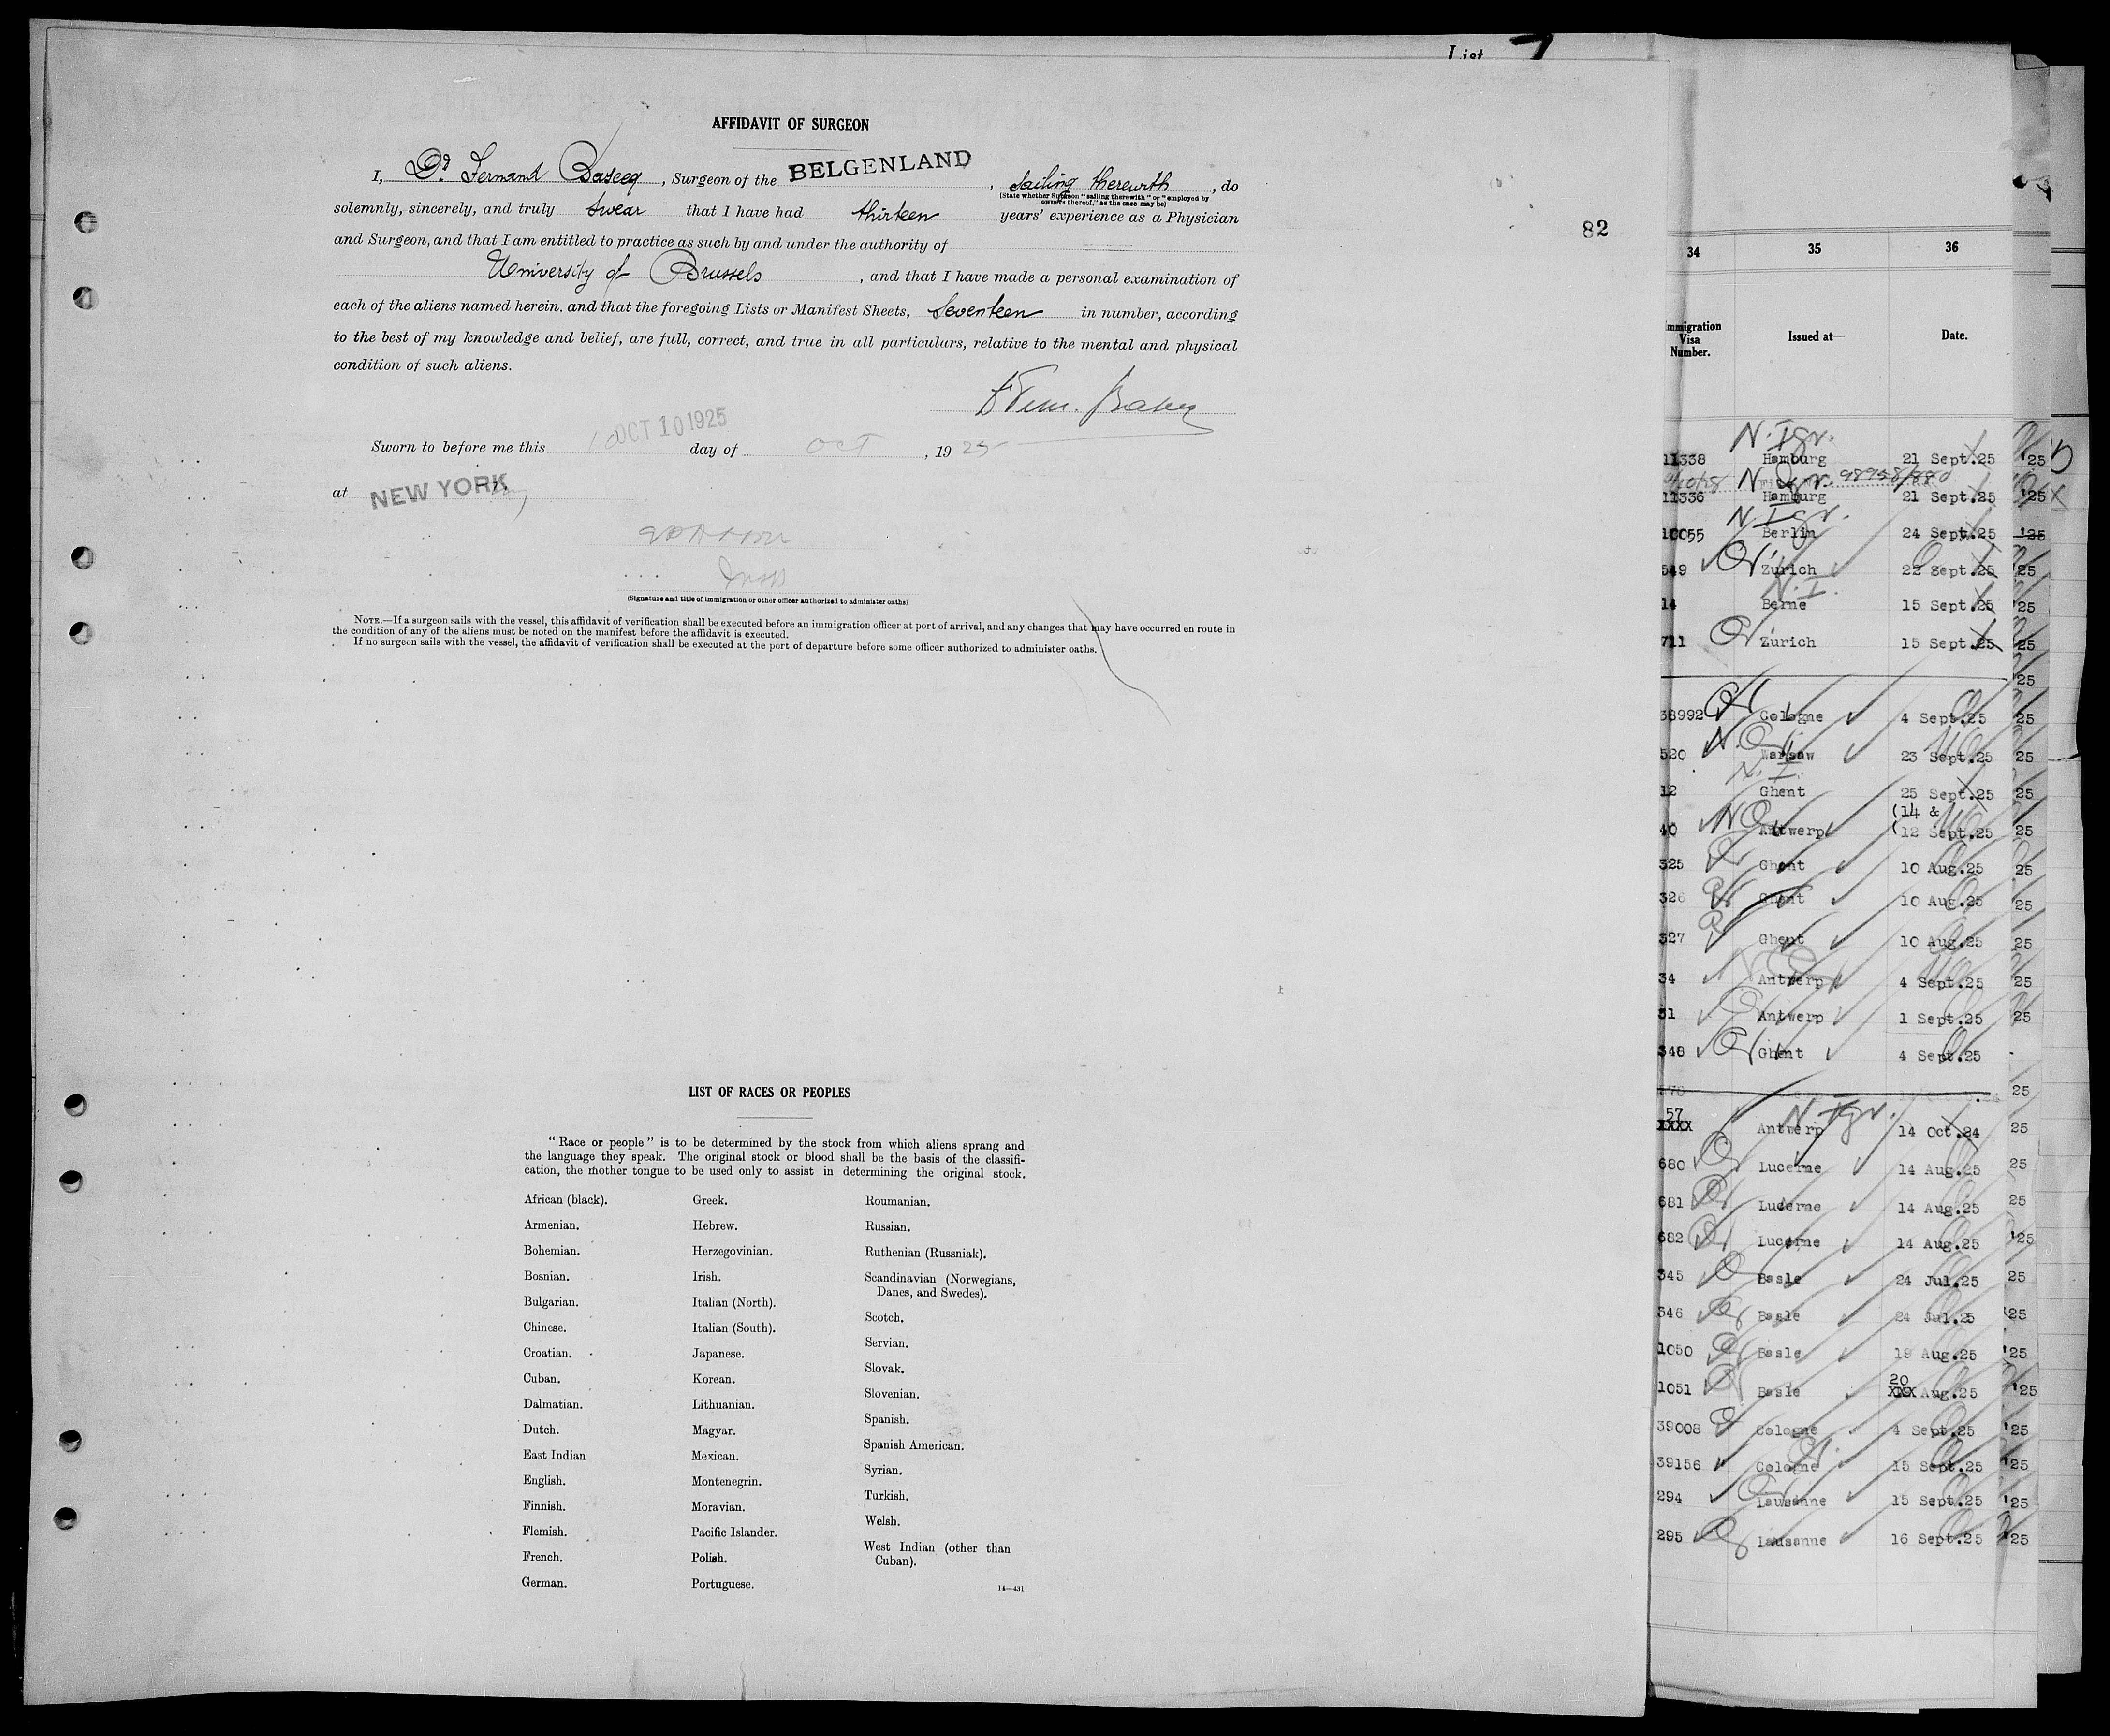 List 7
AFFIDAVIT OF SURGEON
I, Dr. Fernand Baseeq, Surgeon of the BELGENLAND, sailing therewith, do
(State whether Surgeon "sailing therewith" or "employed by
owners thereof," as the case may be)
solemnly, sincerely, and truly swear that I have had thirteen years' experience as a Physician
82
and Surgeon, and that I am entitled to practice as such by and under the authority of
University of Brussels, and that I have made a personal examination of
each of the aliens named herein. and that the foregoing Lists or Manifest Sheets, Seventeen in number, according
to the best of my knowledge and belief, are full, correct, and true in all particulars, relative to the mental and physical
condition of such aliens.
OCT 10 1925
Sworn to before me this 10 day of OCT, 1925
at NEW YORK
(Signature and title of immigration or other officer authorized to administer oaths)
NOTE.—If a surgeon sails with the vessel, this affidavit of verification shall be executed before an immigration officer at port of arrival, and any changes that may have occurred en route in
the condition of any of the aliens must be noted on the manifest before the affidavit is executed.
If no surgeon sails with the vessel, the affidavit of verification shall be executed at the port of departure before some officer authorized to administer oaths.
LIST OF RACES OR PEOPLES
"Race or people" is to be determined by the stock from which aliens sprang and
the language they speak. The original stock or blood shall be the basis of the classifi-
cation, the mother tongue to be used only to assist in determining the original stock.
African (black).
Armenian.
Bohemian.
Bosnian.
Bulgarian.
Chinese.
Croatian.
Cuban.
Dalmatian.
Dutch.
East Indian
English.
Finnish.
Flemish.
French.
German.
Greek.
Hebrew.
Herzegovinian.
Irish.
Italian (North).
Italian (South).
Japanese.
Korean.
Lithuanian.
Magyar.
Mexican.
Montenegrin.
Moravian.
Pacific Islander.
Polish.
Portuguese.
Roumanian.
Russian.
Ruthenian (Russniak).
Scandinavian (Norwegians,
Danes, and Swedes).
Scotch.
Servian.
Slovak.
Slovenian.
Spanish.
Spanish American.
Syrian.
Turkish.
Welsh.
West Indian (other than
Cuban).
14—431
34 35 36
Immigration
Visa
Number.
Issued at—
Date.
N. Igr.
11338 Hamburg 21 Sept.25 '25
N Igr. 98958/880
11336 Hamburg 21 Sept.25 '25
N Igr.
10055 Berlin 24 Sept.25 '25
549 Zürich 22 Sept.25 25
N.I.
14 Berne 15 Sept.25 '25
711 Zürich 15 Sept.25 25
25
38992 Cologne 4 Sept.25 25
520 Warsaw 23 Sept.25 25
N. I.
12 Ghent 25 Sept.25 25
(14 &
40 NQ Antwerp (12 Sept.25 25
325 Ghent 10 Aug.25 25
326 Ghent 10 Aug.25 25
327 Ghent 10 Aug.25 25
34 Antwerp 4 Sept.25 25
31 Antwerp 1 Sept.25 25
348 Ghent 4 Sept.25
25
57 N Igr.
XXXX Antwerp 14 Oct.24 25
680 Lucerne 14 Aug.25 25
681 Lucerne 14 Aug.25 25
682 Lucerne 14 Aug.25 '25
345 Basle 24 Jul.25 25
346 Basle 24 Jul.25 25
1050 Basle 19 Aug.25 '25
20
1051 Basle XXX Aug.25 '25
39008 Cologne 4 Sept.25 '25
39156 Cologne 15 Sept.25 '25
294 Lausanne 15 Sept.25 '25
295 Lausanne 16 Sept.25 25